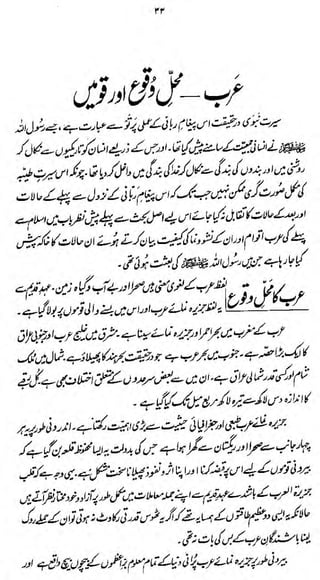 ۳۳
عرب — محلِّ وقوع اور قومیں
سیرتِ نبویؐ درحقیقت اس پیغامِ ربانی کے عملی پَرتَو سے عبارت ہے، جسے رسول اللہ
ﷺ نے انسانی جمعیت کے سامنے پیش کیا تھا، اور جس کے ذریعے انسان کو تاریکیوں سے نکال کر
روشنی میں اور بندوں کی بندگی سے نکال کر خدا کی بندگی میں داخل کر دیا تھا، چونکہ اس سیرتِ طیبہ
کی مکمل صورت گری ممکن نہیں جب تک کہ اس پیغامِ ربّانی کے نزول سے پہلے کے حالات
اور بعد کے حالات کا تقابل نہ کیا جائے اس لیے اصل بحث سے پہلے پیشِ نظر باب میں اسلام سے
پہلے کی عرب اقوام اور ان کے نشو و نما کی کیفیت بیان کرتے ہوئے ان حالات کا خاکہ پیش
کیا جا رہا ہے جن میں رسول اللہ ﷺ کی بعثت ہوئی تھی۔
عرب کا محلِ وقوع لفظ عرب کے لغوی معنی ہیں صحرا اور بے آب و گیاہ زمین۔ عہدِ قدیم سے
یہ لفظ جزیرہ نمائے عرب اور اس میں بسنے والی قوموں پر بولا گیا ہے۔
عرب کے مغرب میں بحر احمر اور جزیرہ نمائے سینا ہے۔ مشرق میں خلیج عرب اور جنوبی عراق
کا ایک بڑا حصہ ہے۔ جنوب میں بحر عرب ہے جو درحقیقت بحر ہند کا پھیلاؤ ہے، شمال میں ملک
شام اور کسی قدر شمالی عراق ہے، ان میں سے بعض سرحدوں کے متعلق اختلاف بھی ہے، کُل رقبے
کا اندازہ دس لاکھ سے تیرہ لاکھ مربع میل تک کیا گیا ہے۔
جزیرہ نمائے عرب طبعی اور جغرافیائی حیثیت سے بڑی اہمیت رکھتا ہے۔ اندرونی طور پر یہ ہر
چہار جانب سے صحرا اور ریگستان سے گھرا ہوا ہے جس کی بدولت یہ ایسا محفوظ قلعہ بن گیا ہے کہ
بیرونی قوموں کے لیے اس پر قبضہ کرنا اور اپنا اثر و نفوذ پھیلانا سخت مشکل ہے۔ یہی وجہ ہے کہ قلب
جزیرۃ العرب کے باشندے عہدِ قدیم سے اپنے جملہ معاملات میں مکمل طور پر آزاد و خود مختار نظر آتے ہیں
حالانکہ یہ ایسی دو عظیم طاقتوں کے ہمسایہ تھے کہ اگر یہ ٹھوس قدرتی رکاوٹ نہ ہوتی تو ان کے حملے روک
لینا باشندگانِ عرب کے بس کی بات نہ تھی۔
بیرونی طور پر جزیرہ نمائے عرب پُرانی دنیا کے تمام معلوم براعظموں کے بیچوں بیچ واقع ہے اور